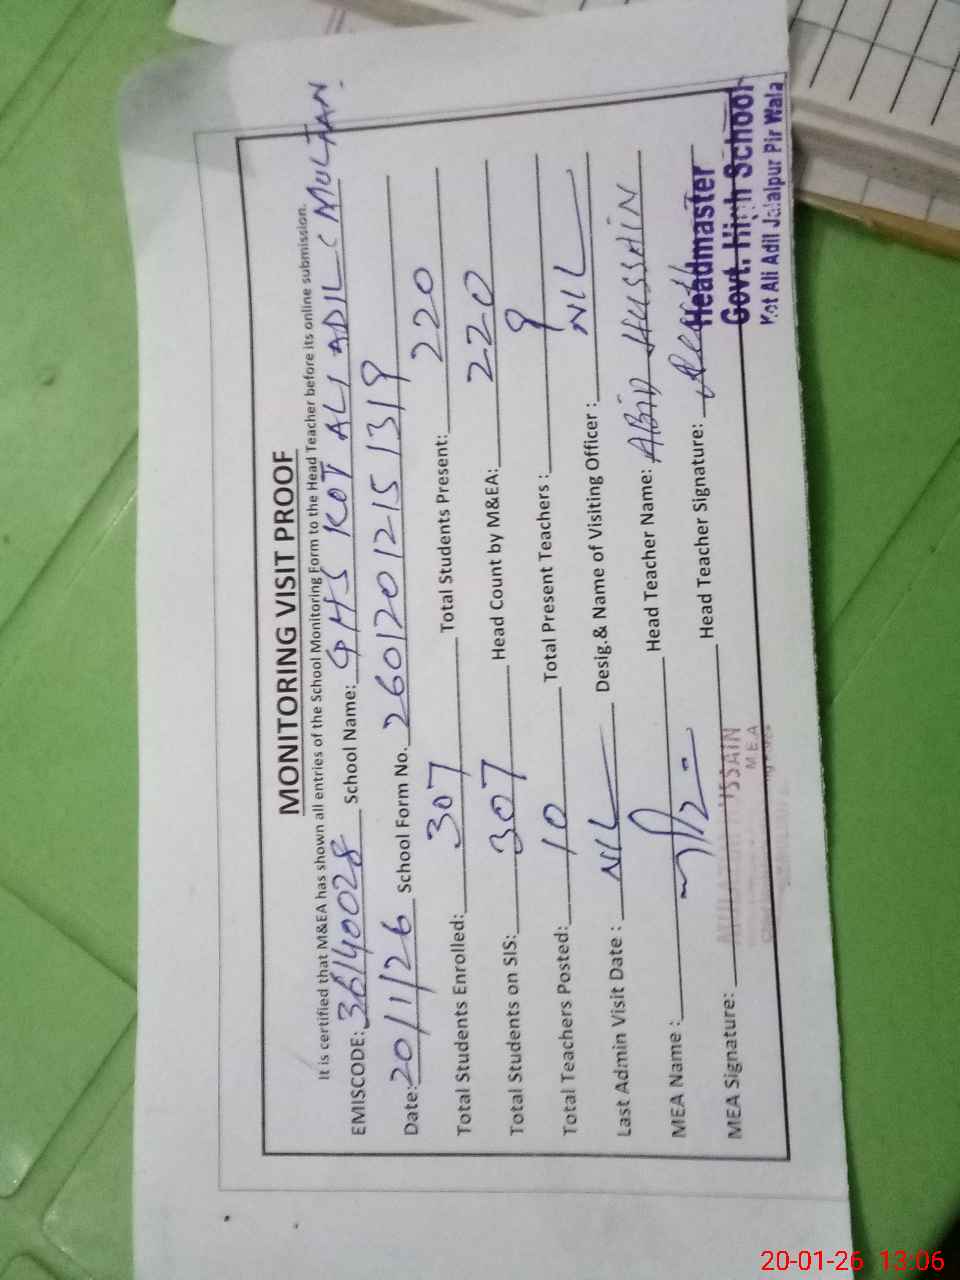 MONITORING VISIT PROOF
It is certified that M&EA has shown all entries of the School Monitoring Form to the Head Teacher before its online submission.
EMISCODE: 36140028 School Name: GHS KOT ALI ADIL (MULTAN.
Date: 20/1/26 School Form No. 26012012151319
Total Students Enrolled: 307 Total Students Present: 220
Total Students on SIS: 307 Head Count by M&EA: 220
Total Teachers Posted: 10 Total Present Teachers : 9
Last Admin Visit Date : NIL Desig.& Name of Visiting Officer : NIL
MEA Name : Head Teacher Name: ABID HUSSAIN
MEA Signature: Head Teacher Signature:
HUSSAIN
M.E.A
Headmaster
Govt. High School
Kot Ali Adil Jalalpur Pir Wala
20-01-26 13:06